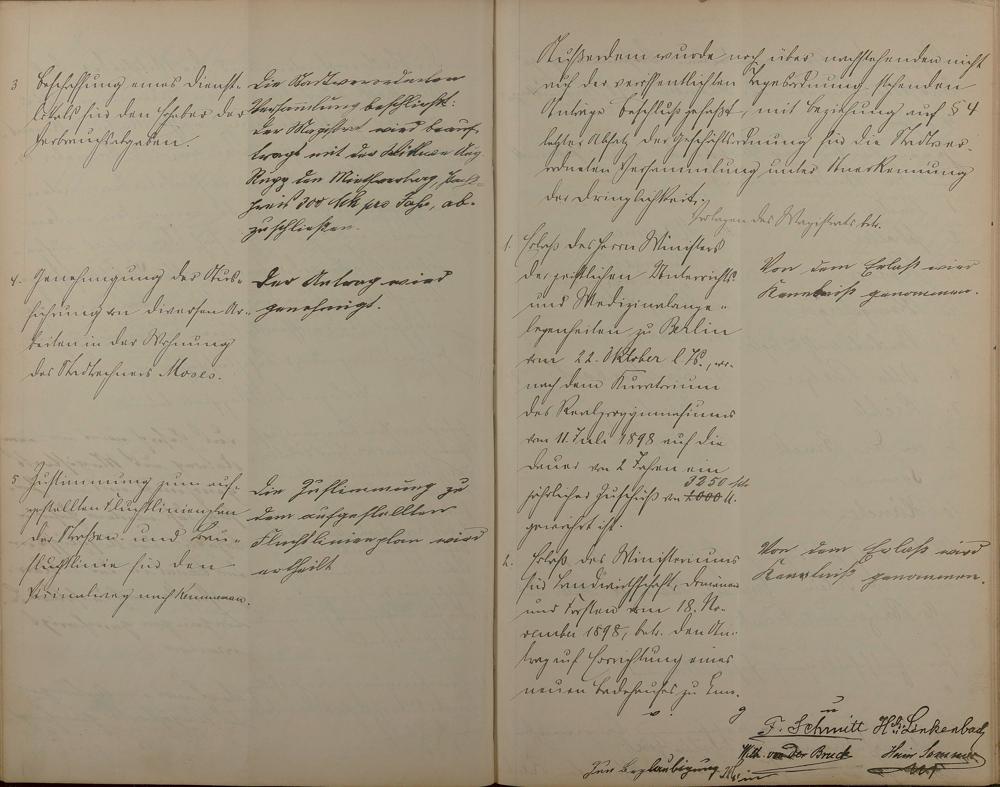 3 Beschaffung eines Dienst-
lokals für den Erheber der
Verbrauchsabgaben.
Die Stadtverordneten
Versammlung beschließt:
Der Magistrat wird beauf-
tragt mit der Wittwe Aug.
Rupp den Miethvertrag,
preis 300 Mk pro Jahr, ab-
zuschließen.
4. Genehmigung der Aus-
führung von diversen Ar-
beiten in der Wohnung
des Stadtrechners Moses.
Der Antrag wird
genehmigt.
5 Zustimmung zum auf-
gestellten Fluchtlinienplan
der Straßen- und Bau-
fluchtlinie für den
Vicinalweg nach Kemmenau.
Die Zustimmung zu
dem aufgestellten
Fluchtlinienplan wird
ertheilt
Außerdem wurde noch über nachstehenden nicht
auf der veröffentlichten Tagesordnung stehenden
Anträge Beschluß gefaßt, mit Beziehung auf § 4
letzter Absatz der Geschäftsordnung für die Stadtver-
ordneten Versammlung unter Anerkennung
der Dringlichkeit:
Vorlagen des Magistrats betr.
1. Erlaß des Herrn Ministers
der geistlichen Unterrichts-
und Medizinalange-
legenheiten zu Berlin
vom 22. Oktober l. Js.,
nach dem Kuratorium
des Realprogymnasiums
vom 11 Juli 1898 auf die
Dauer von 2 Jahren ein
3250 Mk
jährlicher Zuschuß von 2000 M.
gewährt ist.
Von dem Erlaß wird
Kenntniß genommen.
2. Erlaß des Ministeriums
für Landwirthschaft, Domänen
und Forsten vom 18. No-
vember 1898, betr. den An-
trag auf Errichtung eines
neuen Badehauses zu Ems.
Von dem Erlaß wird
Kenntniß genommen.
v. g. u.
F. Schmitt Linkenbach
Wilh. von der Bruck Heinr Sommer
Zur Beglaubigung